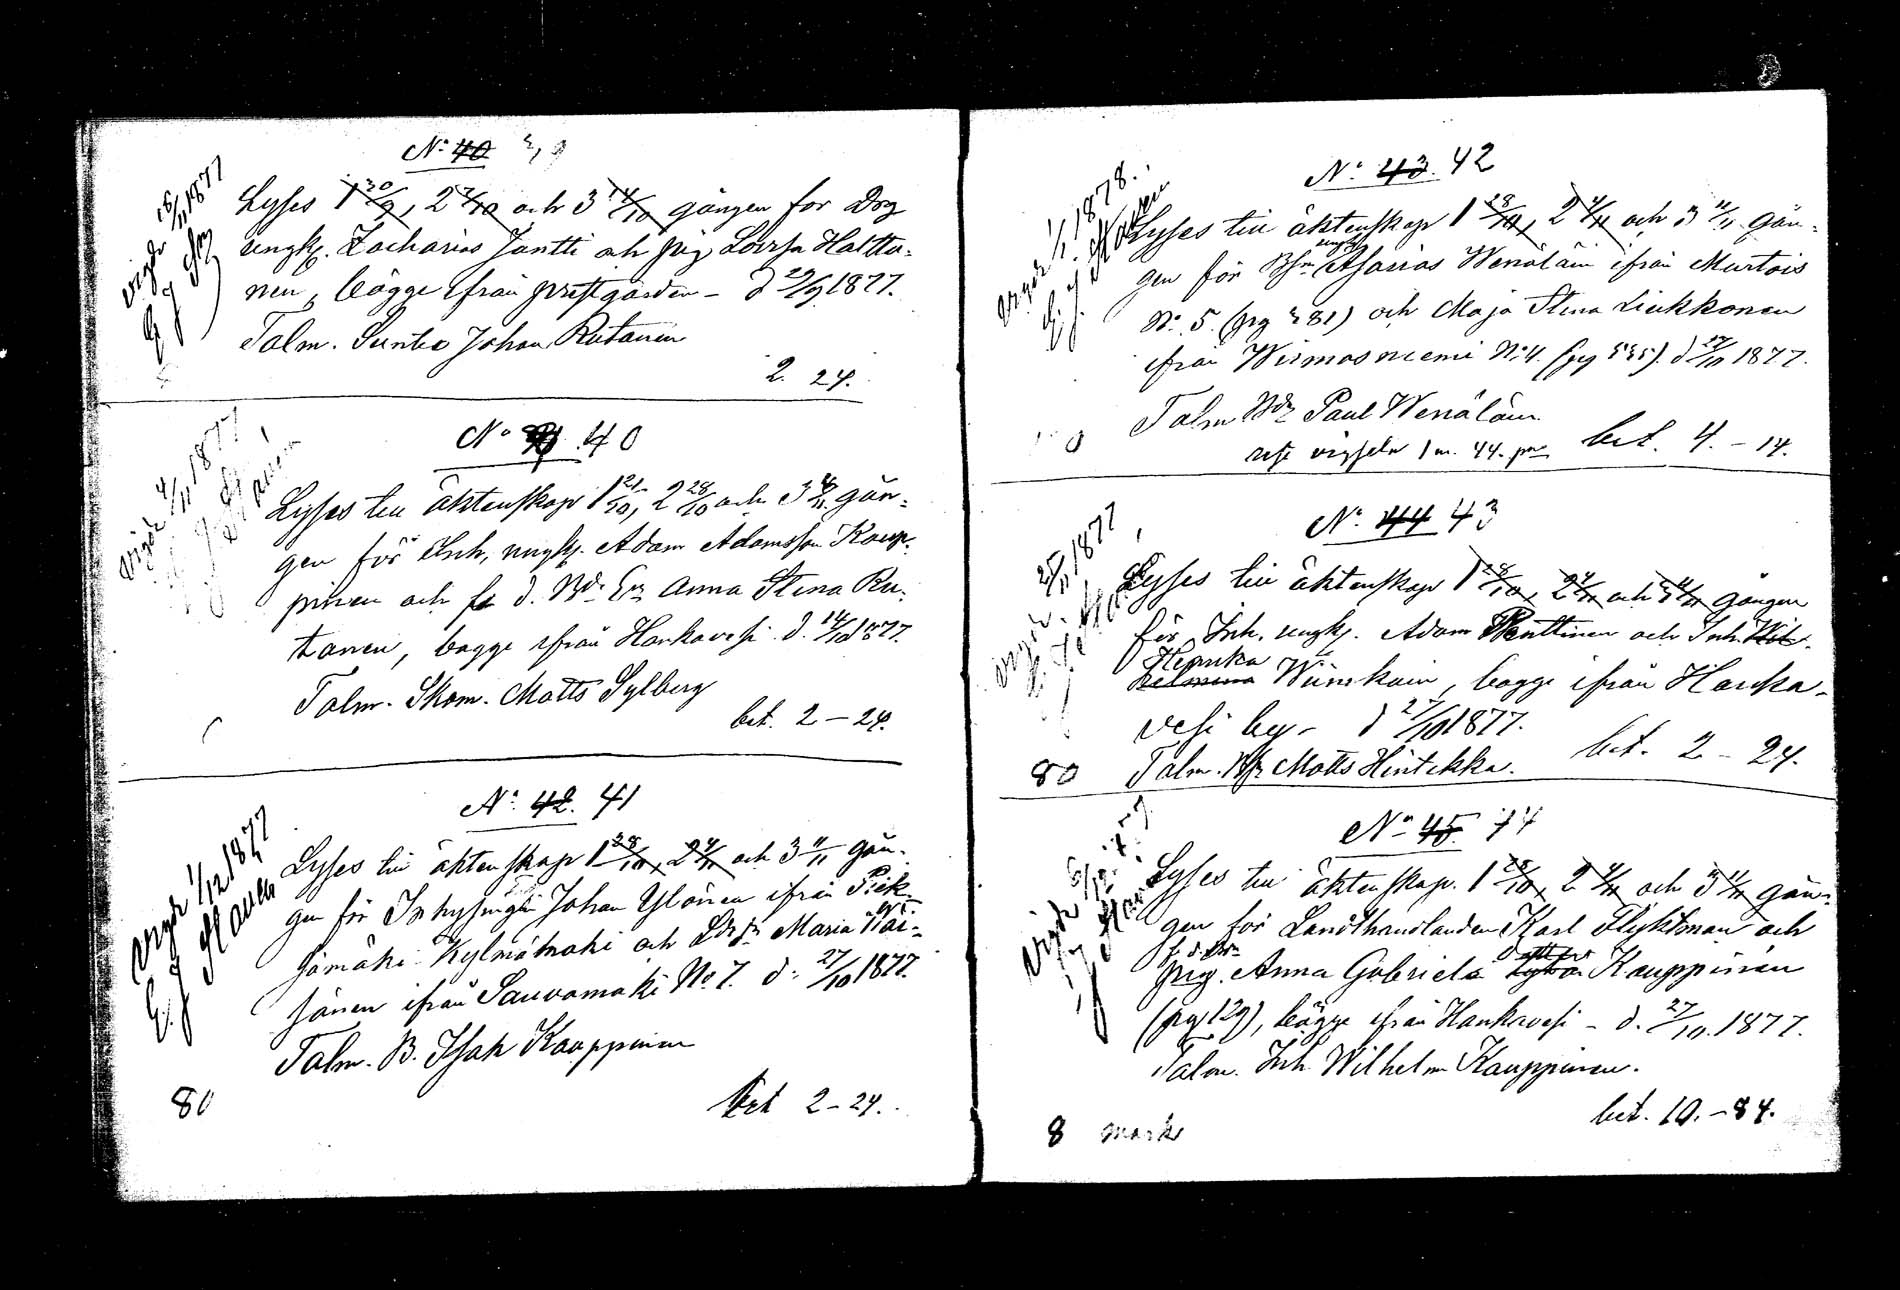 No 40 39
Vigde 18/11 1877
Lyses 1 30/9, 2 7/10 och 3 14/10 gången for Drg
ungk. Zacharias Jantti och pig Lovisa Hattu-
nen, bägge ifrån prestgården - d 29/9 1877.
Talm. Johan Rutanen
2. 24.
No 41. 40
Vigde 4/11 1877
Lyses till äktenskap 1 21/10, 2 28/10 och 3 4/11 gån-
gen för Inh, ungk. Adam Adamsson Kaup-
pinen och d. Anna Stina Ru-
tanen, bägge ifrån Hankavesi. d. 14/10 1877.
Talm. Skom. Matts Sylberg
bet. 2 - 24.
No 42. 41
Vigde 1/12 1877
E. J. Mavén
Lyses till äktenskap 1 28/10, 2 4/11 och 3 11/11 gån-
gen för Johan Ylönen ifrån Piek-
sämäki Kylmämäki och Maria Räi-
sänen ifrån Sauvamäki No 7. d. 27/10 1877.
Talm. B. Isak Kauppinen
80
bet 2 - 24.
No 43. 42
Vigde 1/1 1878.
E. J. Mavén
Lyses till äktenskap 1 28/10, 2 4/11 och 3 11/11 gån-
ungk
gen för Asarias Wenäläin ifrån Murtois
No 5. (pag 281) och Maja Stina Liukkonen
ifrån Wiimasniemi No 4. (pag 535). d 27/10 1877.
Talm Paul Wenäläin
rest vigseln 1 m. 44. pn bet. 4. - 14.
No 44 43
Vigde 25/11 1877
Lyses till äktenskap 1 28/10, 2 4/11 och 3 11/11 gången
för Inh. ungk. Adam Penttinen och Inh. Wil-
Henrika
helmina Wiinikain, bägge ifrån Hanka-
vesi by - d 27/10 1877.
80 Talm. Matts Hintikka. bet. 2 - 24.
No 45. 44
Vigde
Lyses till äktenskap. 1 28/10, 2 4/11 och 3 11/11 gån-
gen för Landthandlanden Karl Flyktman och
pig. Anna Gabriels dotter Kauppinen
(pag 129), bägge ifrån Hankavesi - d. 27/10. 1877.
Talm. Inh. Wilhelm Kauppinen.
bet. 10. - 84.
8 mark